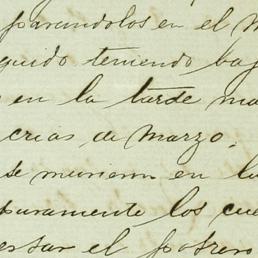 parandolos en el M
guido teniendo baj
en la tarde ma
crias de Marzo.
se murieron en la
puramente los cue
esar el potrero